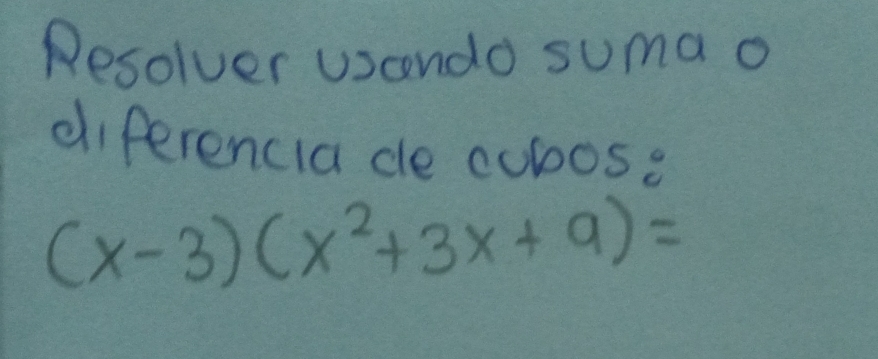 Resolver usando suma o
diferencia de cubos:
(x-3)(x²+3x+9)=